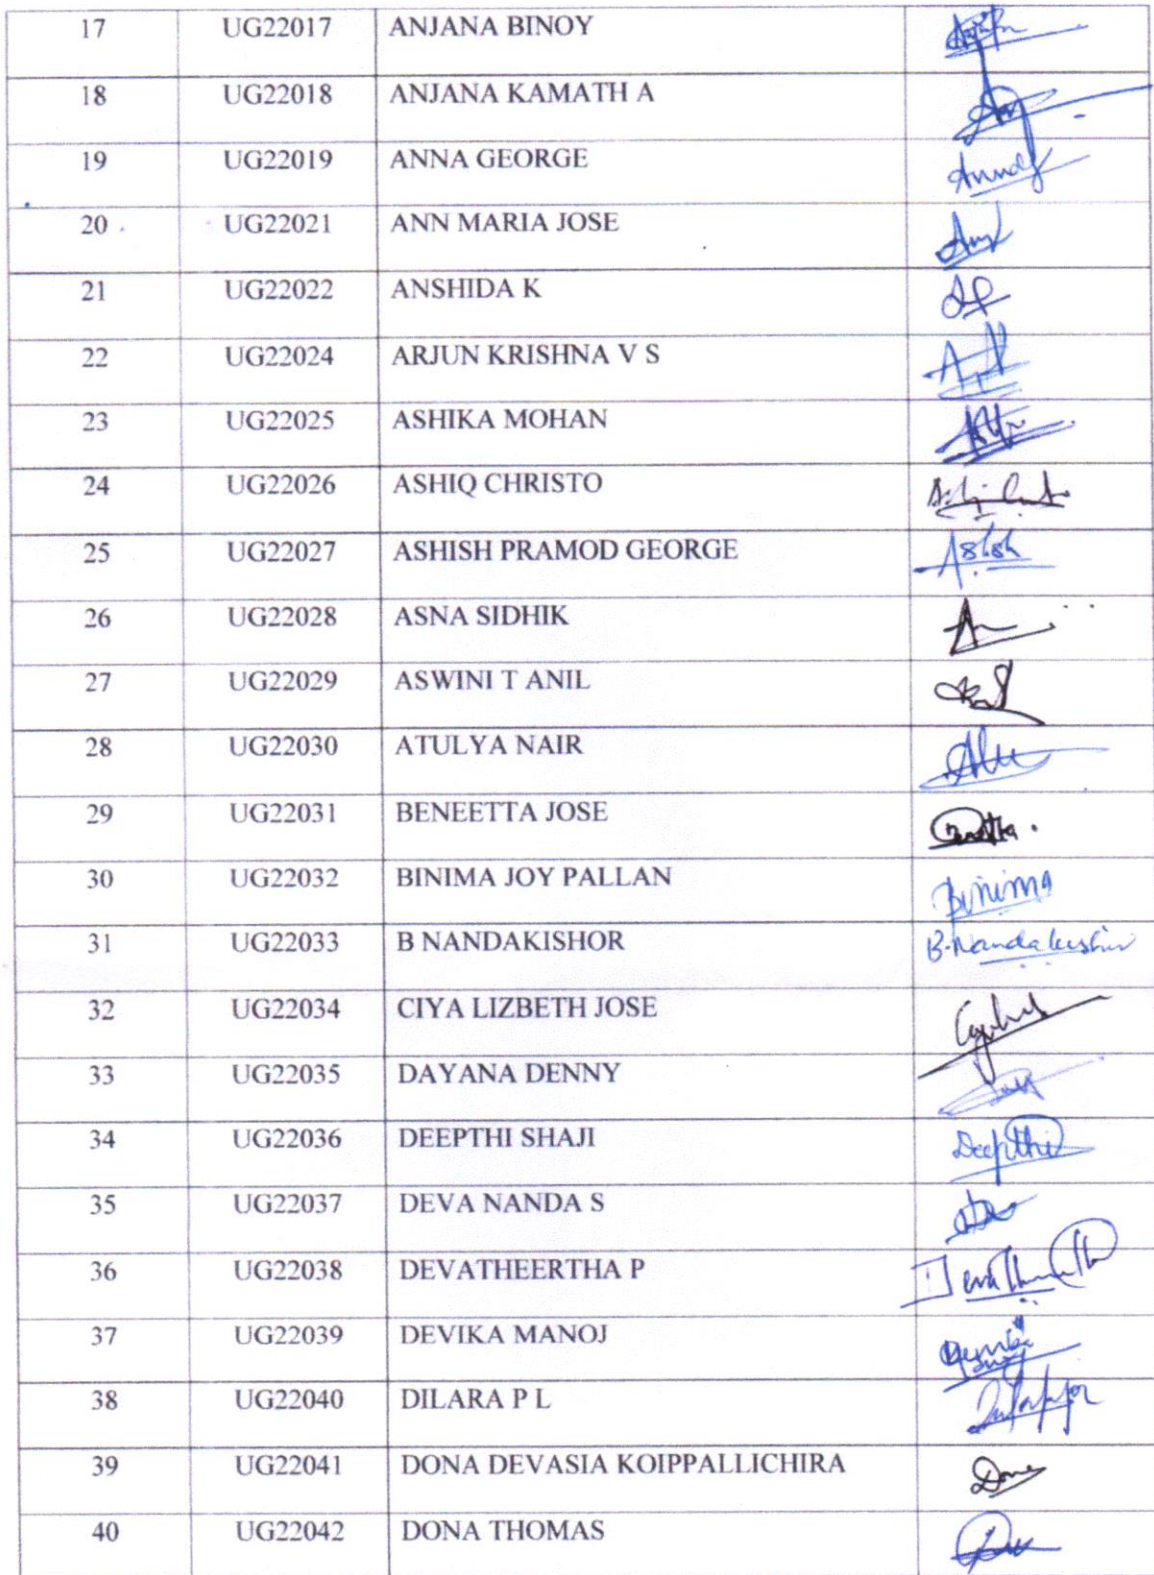 17 UG22017 ANJANA BINOY
18 UG22018 ANJANA KAMATH A
19 UG22019 ANNA GEORGE
20 UG22021 ANN MARIA JOSE
21 UG22022 ANSHIDA K
22 UG22024 ARJUN KRISHNA V S
23 UG22025 ASHIKA MOHAN
24 UG22026 ASHIQ CHRISTO
25 UG22027 ASHISH PRAMOD GEORGE Ashish
26 UG22028 ASNA SIDHIK
27 UG22029 ASWINI T ANIL
28 UG22030 ATULYA NAIR
29 UG22031 BENEETTA JOSE
30 UG22032 BINIMA JOY PALLAN Binima
31 UG22033 B NANDAKISHOR B.Nandakishor
32 UG22034 CIYA LIZBETH JOSE
33 UG22035 DAYANA DENNY
34 UG22036 DEEPTHI SHAJI Deepthi
35 UG22037 DEVA NANDA S
36 UG22038 DEVATHEERTHA P
37 UG22039 DEVIKA MANOJ
38 UG22040 DILARA P L
39 UG22041 DONA DEVASIA KOIPPALLICHIRA Dona
40 UG22042 DONA THOMAS